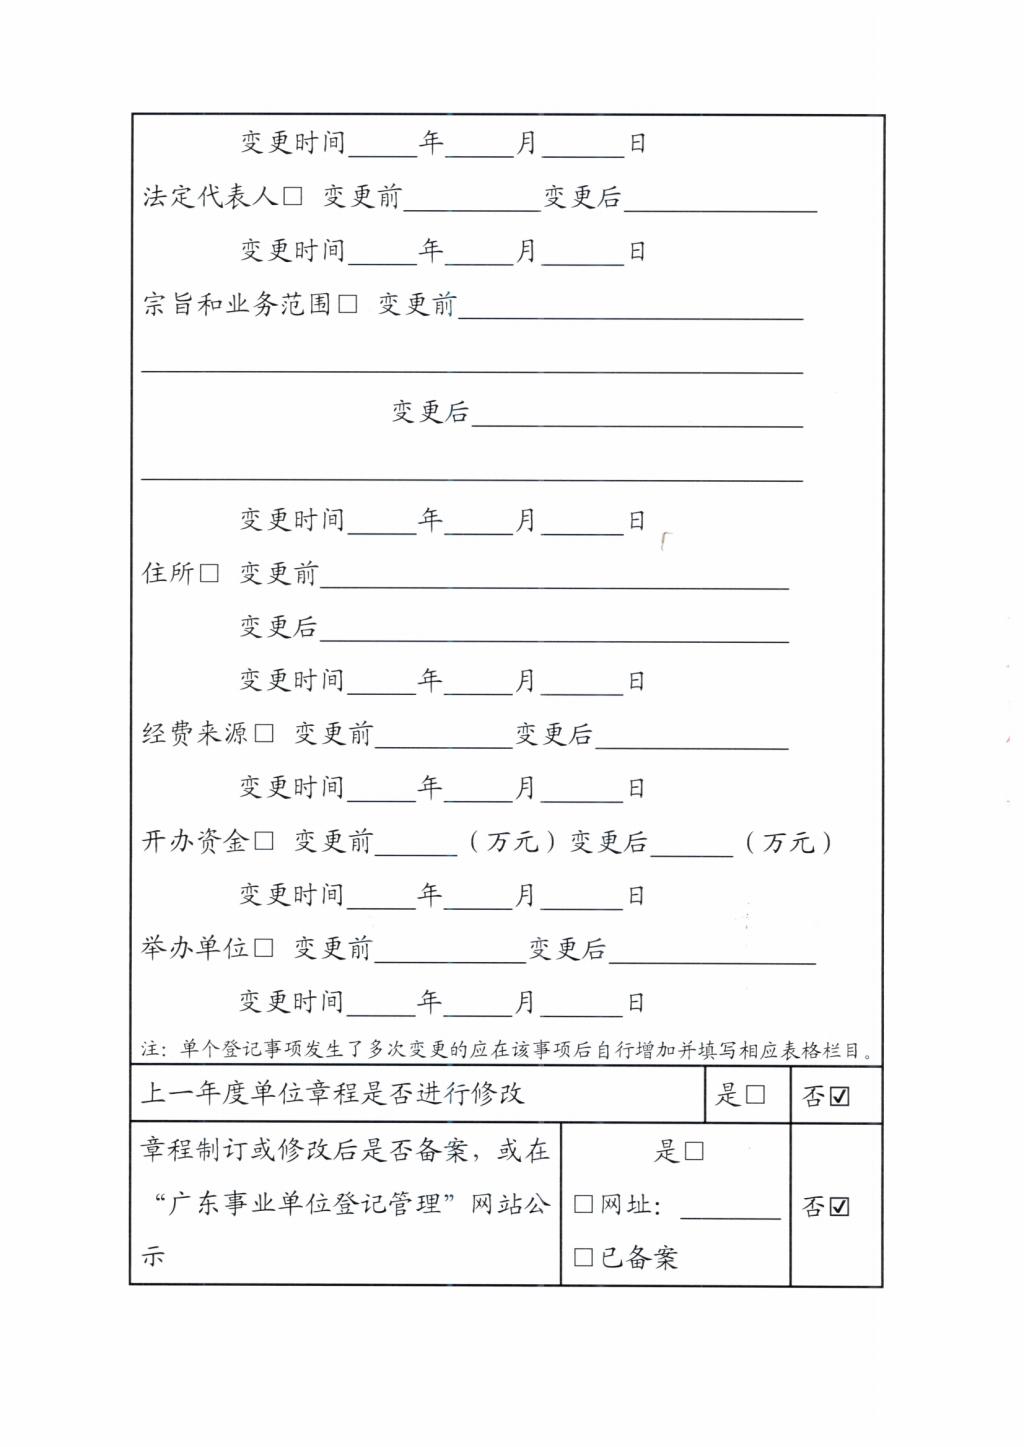 变更时间_____年_____月______日
法定代表人□ 变更前__________变更后______________
变更时间_____年_____月______日
宗旨和业务范围□ 变更前_________________________
________________________________________________
变更后________________________
________________________________________________
变更时间_____年_____月______日
住所□ 变更前__________________________________
变更后__________________________________
变更时间_____年_____月______日
经费来源□ 变更前__________变更后______________
变更时间_____年_____月______日
开办资金□ 变更前______（万元）变更后______（万元）
变更时间_____年_____月______日
举办单位□ 变更前___________变更后_______________
变更时间_____年_____月______日
注：单个登记事项发生了多次变更的应在该事项后自行增加并填写相应表格栏目。
上一年度单位章程是否进行修改 是□ 否☑
章程制订或修改后是否备案，或在
“广东事业单位登记管理”网站公
示
是□
□网址：_______
□已备案
否☑